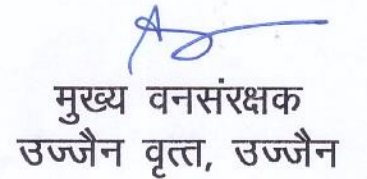 मुख्य वनसंरक्षक
उज्जैन वृत्त, उज्जैन